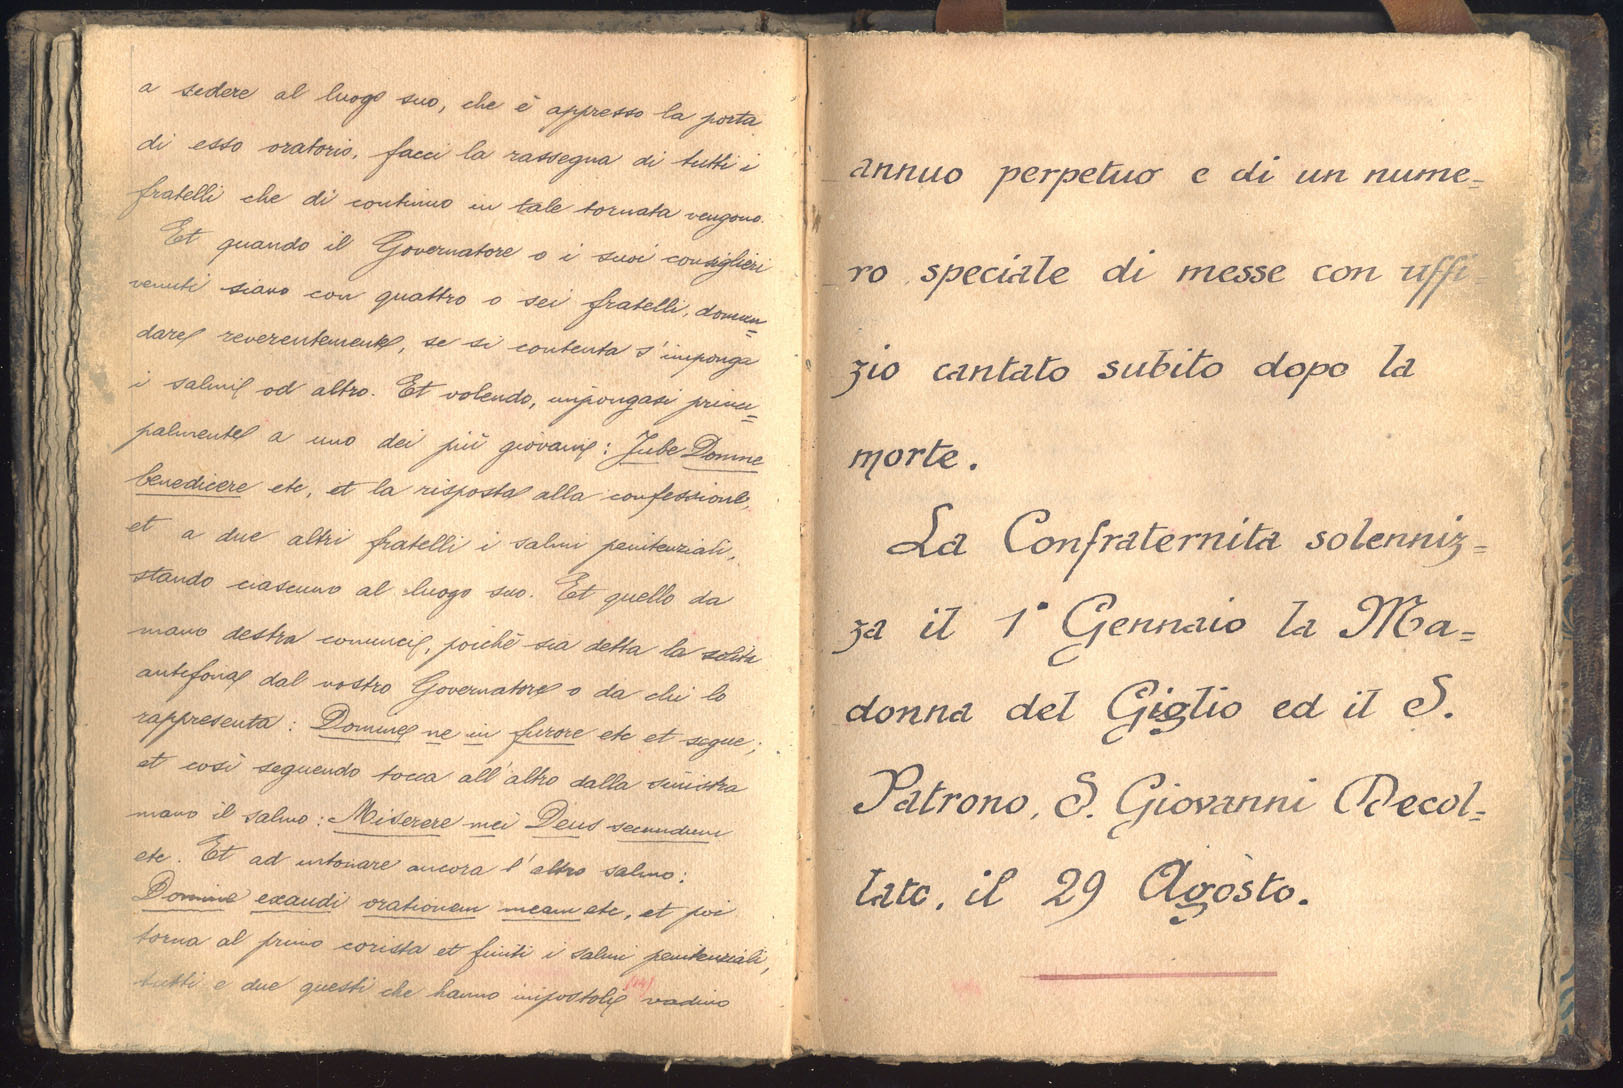 a sedere al luogo suo, che è appresso la porta
di esso oratorio, facci la rassegna di tutti i
fratelli che di continuo in tale tornata vengono.
Et quando il Governatore o i suoi consiglieri
venuti siano con quattro o sei fratelli, doman=
dare reverentemente, se si contenta s'imponga
i salmi od altro. Et volendo, impongasi princi=
palmente a uno dei più giovani: Jube Domne
benedicere etc, et la risposta alla confessione,
et a due altri fratelli i salmi penitenziali,
stando ciascuno al luogo suo. Et quello da
mano destra cominci, poichè sia detta la solita
antefona dal vostro Governatore o da chi lo
rappresenta: Domine ne in furore etc et segue;
et così seguendo tocca all'altro dalla sinistra
mano il salmo: Miserere mei Deus secundum
etc. Et ad intonare ancora l'altro salmo:
Domine exaudi orationem meam etc, et poi
torna al primo corista et finiti i salmi penitenziali,
tutti e due questi che hanno impostoli vadino
annuo perpetuo e di un nume=
ro speciale di messe con uffi=
zio cantato subito dopo la
morte.
La Confraternita solenniz=
za il 1° Gennaio la Ma=
donna del Giglio ed il S.
Patrono, S. Giovanni Decol=
lato, il 29 Agosto.